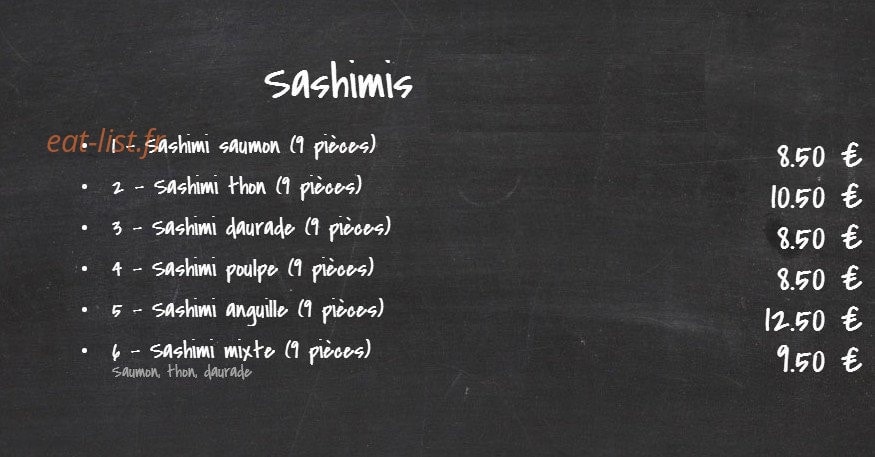 Sashimis
eat-list.fr
• 1 - Sashimi saumon (9 pièces) 8.50 €
• 2 - Sashimi thon (9 pièces) 10.50 €
• 3 - Sashimi daurade (9 pièces) 8.50 €
• 4 - Sashimi poulpe (9 pièces) 8.50 €
• 5 - Sashimi anguille (9 pièces) 12.50 €
• 6 - Sashimi mixte (9 pièces) 9.50 €
Saumon, thon, daurade